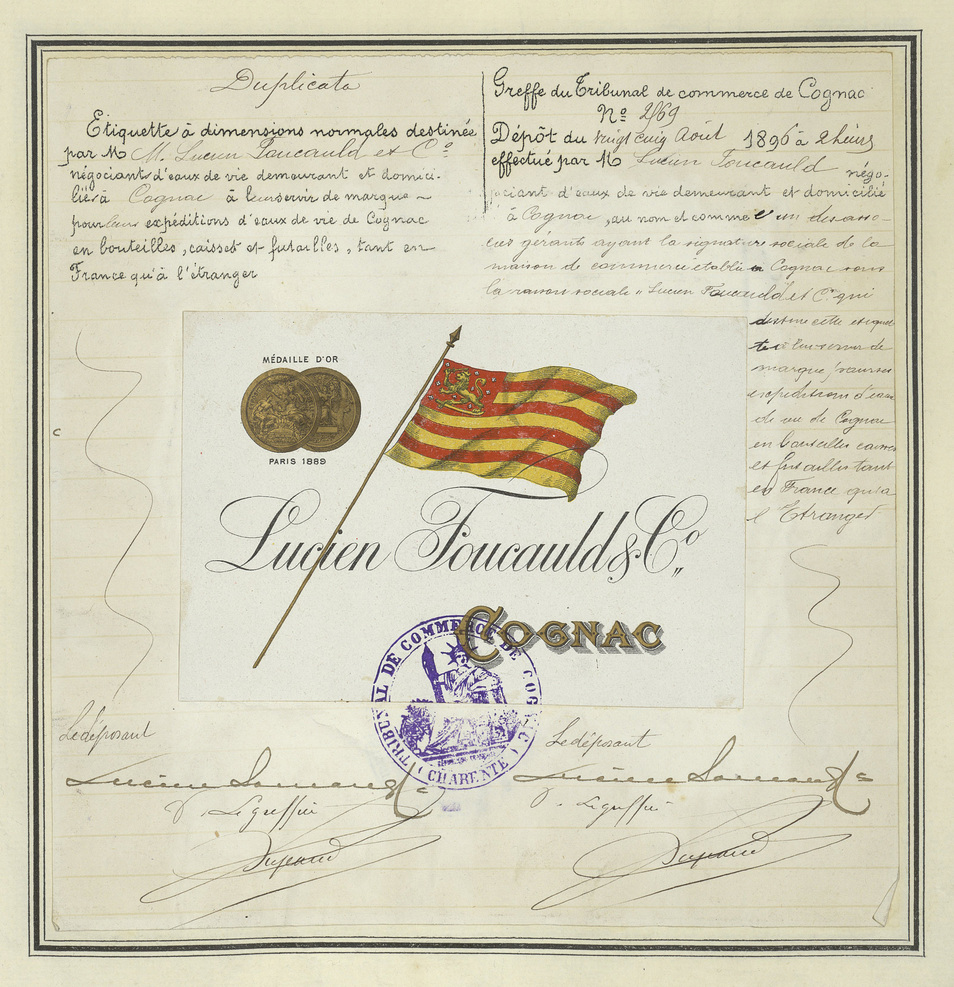 Duplicata
Etiquette à dimensions normales destinée
par M M. Lucien Foucauld et Cº
négociants d'eaux de vie demeurant et domici-
liés à Cognac à leur servir de marque
pour leurs expéditions d'eaux de vie de Cognac
en bouteilles, caisses et futailles, tant en
France qu'à l'étranger
Greffe du Tribunal de commerce de Cognac
Nº 2169
Dépôt du vingt cinq Août 1896 à 2 heures
effectué par M Lucien Foucauld négo-
ciant d'eaux de vie demeurant et domicilié
à Cognac, au nom et comme un des asso-
ciés gérants ayant la signature sociale de la
maison de commerce établie à Cognac sous
la raison sociale "Lucien Foucauld et Cº qui
destine cette etiquet-
te à leur servir de
marque pour ses
expéditions d'eaux
de vie de Cognac
en bouteilles caisses
et futailles tant
en France qu'à
l'Etranger
MÉDAILLE D'OR
PARIS 1889
Lucien Foucauld & Cº
COGNAC
TRIBUNAL DE COMMERCE DE COGNAC
(CHARENTE)
Le déposant
Le déposant
Le greffier
Le greffier